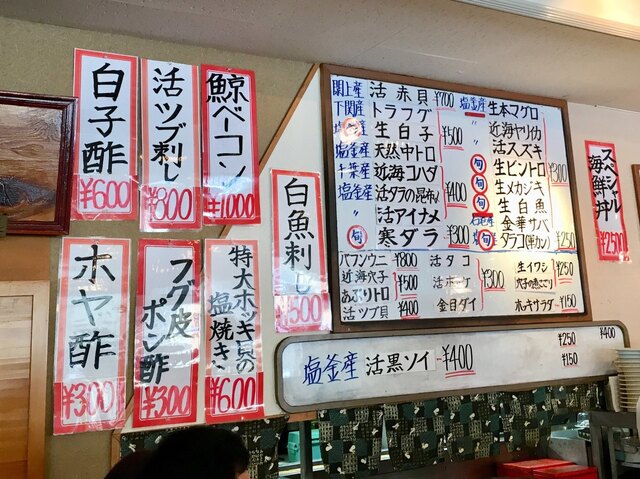 白子酢
¥600
活ツブ刺し
¥800
鯨ベーコン
¥1000
ホヤ酢
¥300
フグ皮
ポン酢
¥300
特大ホッキ貝の
塩焼き
¥600
白魚刺し
¥500
閖上産 活赤貝 ¥700
下関産 トラフグ
生白子 ¥500
塩釜産 天然中トロ
千葉産 近海コハダ
塩釜産 活タラの昆布〆 ¥400
〃 活アイナメ
旬 寒ダラ ¥300
塩釜産 生本マグロ
〃 近海ヤリイカ
〃 活スズキ
旬 生ビントロ ¥300
旬 生メカジキ
旬 生白魚
金華サバ
旬 タラコ(半カン) ¥250
バフンウニ ¥800
近海穴子 ¥500
あぶりトロ
活ツブ貝 ¥400
活タコ
活ホッケ ¥300
金目ダイ
生イワシ ¥250
穴子の魚にこごり
ホッキサラダ ¥150
塩釜産 活黒ソイ ¥400
¥250
¥400
¥150
スペシャル
海鮮丼
¥2500